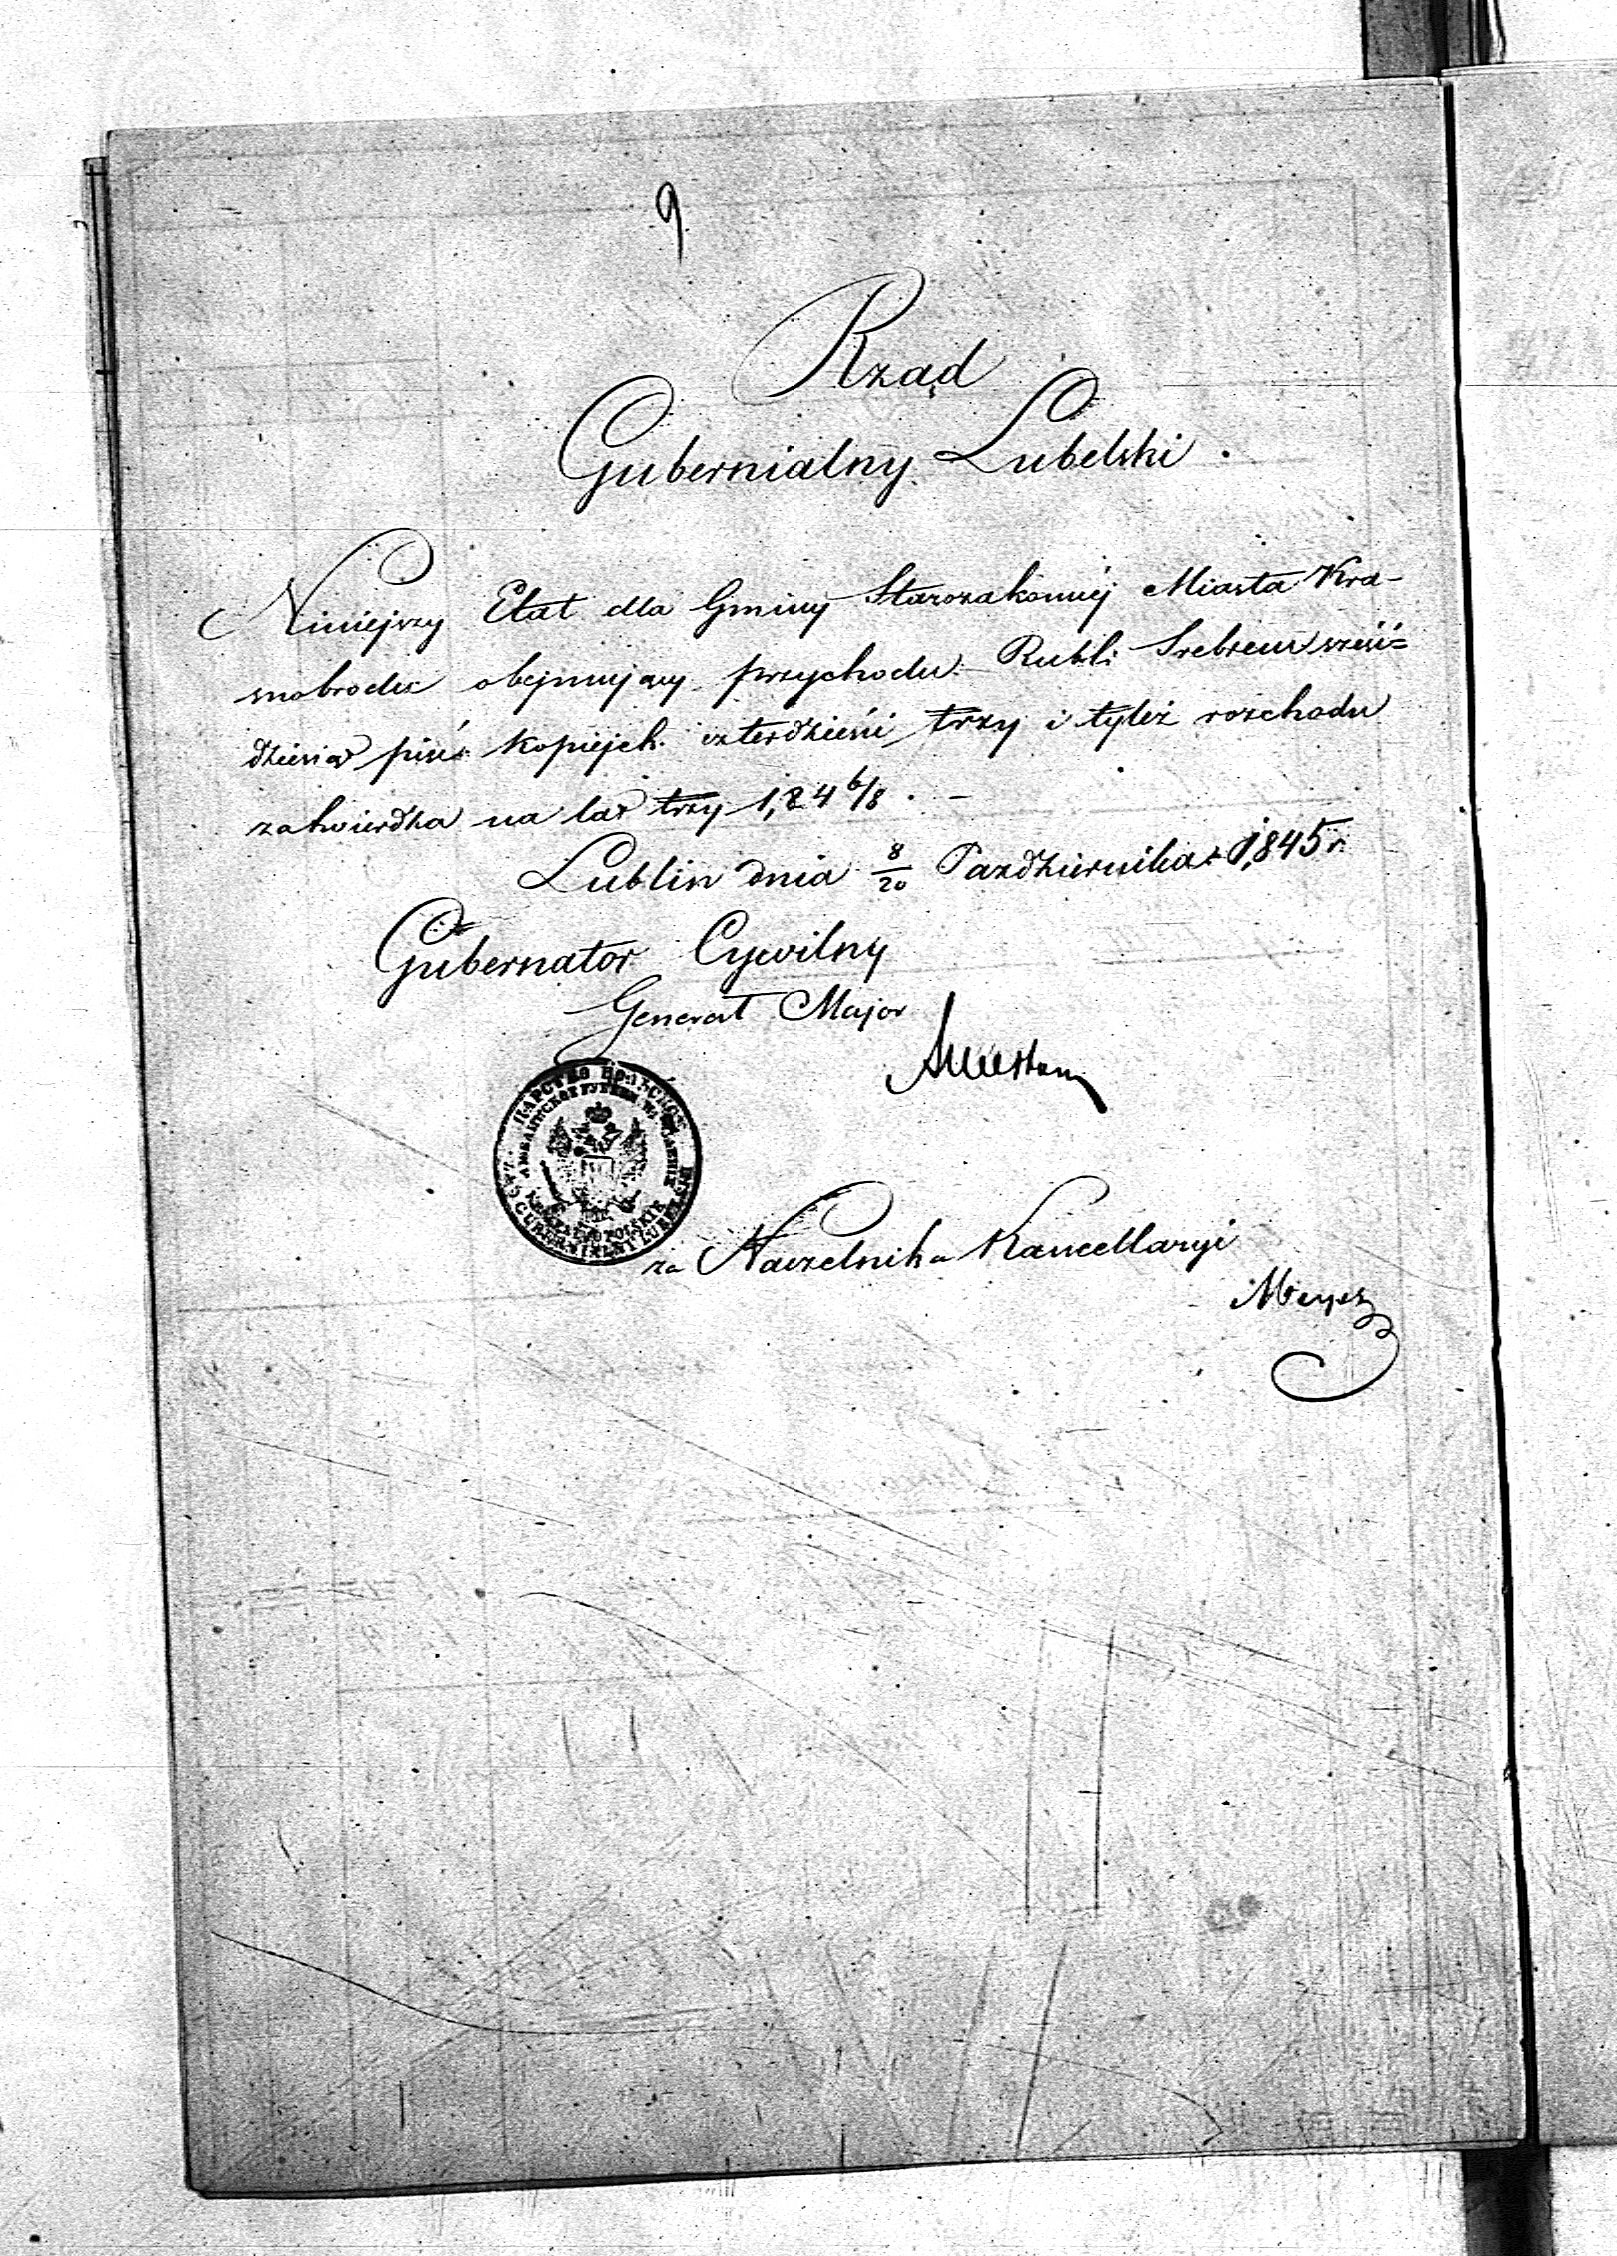 9
Rząd
Gubernialny Lubelski.
Niniejszy Etat dla Gminy Starozakonnéj Miasta Kra-
snobrodu obejmujący przychodu Rubli Srebrem sześć=
dziesiąt pięć kopiejek czterdzieści trzy i tyleż rozchodu
zatwierdza na lat trzy 1,84 6/8. –
Lublin dnia 8/20 Października 1,845 r.
Gubernator Cywilny
Generał Major
ЦАРСТВО ПОЛЬСКОЕ
ЛЮБЛИНСКОЕ ГУБЕРН. ПРАВЛЕНІЕ
KRÓLESTWO POLSKIE
RZĄD GUBERNIALNY LUBELSKI
za Naczelnika Kancellaryi
Meyer